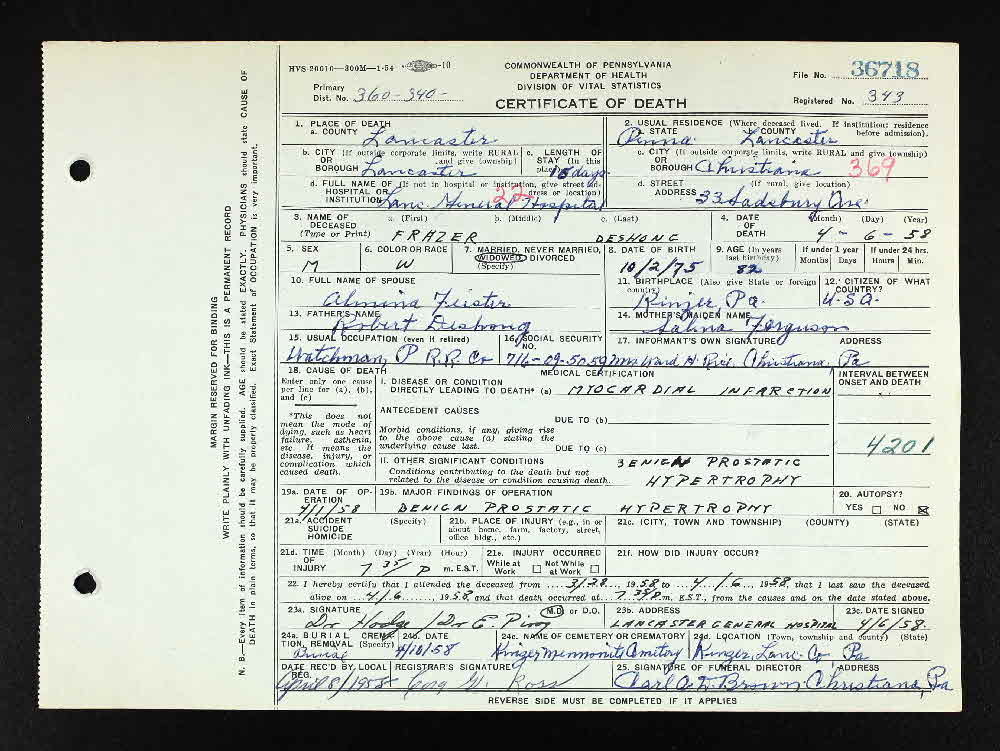 HVS-20010—300M—1-54 -10
COMMONWEALTH OF PENNSYLVANIA
DEPARTMENT OF HEALTH
DIVISION OF VITAL STATISTICS
CERTIFICATE OF DEATH
File No. 36718
Primary Dist. No. 360-340-
Registered No. 343
1. PLACE OF DEATH
a. COUNTY Lancaster
2. USUAL RESIDENCE (Where deceased lived. If institution: residence before admission).
a. STATE Penna. b. COUNTY Lancaster
b. CITY (If outside corporate limits, write RURAL and give township) OR BOROUGH Lancaster
c. LENGTH OF STAY (In this place) 15 days
c. CITY (If outside corporate limits, write RURAL and give township) OR BOROUGH Christiana 369
d. FULL NAME OF (If not in hospital or institution, give street address or location) HOSPITAL OR INSTITUTION Lanc. General Hospital 22
d. STREET ADDRESS (If rural, give location) 33 Sadsbury Ave
3. NAME OF DECEASED (Type or Print)
a. (First) b. (Middle) c. (Last)
FRAZER DESHONG
4. DATE OF DEATH (Month) (Day) (Year)
4 - 6 - 58
5. SEX M
6. COLOR OR RACE W
7. MARRIED, NEVER MARRIED, WIDOWED, DIVORCED (Specify)
8. DATE OF BIRTH 10/2/75
9. AGE (In years last birthday) 82
If under 1 year Months Days
If under 24 hrs. Hours Min.
10. FULL NAME OF SPOUSE
Almina Feister
11. BIRTHPLACE (Also give State or foreign country)
Kinzer, Pa.
12. CITIZEN OF WHAT COUNTRY?
U.S.A.
13. FATHER'S NAME
Robert Deshong
14. MOTHER'S MAIDEN NAME
Salina Ferguson
15. USUAL OCCUPATION (even if retired)
Watchman P R.R. Co
16. SOCIAL SECURITY NO.
716-09-5059
17. INFORMANT'S OWN SIGNATURE ADDRESS
Mrs Ward H. Christiana, Pa
18. CAUSE OF DEATH
Enter only one cause per line for (a), (b), and (c)
MEDICAL CERTIFICATION
INTERVAL BETWEEN ONSET AND DEATH
I. DISEASE OR CONDITION
DIRECTLY LEADING TO DEATH* (a) MYOCARDIAL INFARCTION
*This does not mean the mode of dying, such as heart failure, asthenia, etc. It means the disease, injury, or complication which caused death.
ANTECEDENT CAUSES
Morbid conditions, if any, giving rise to the above cause (a) stating the underlying cause last.
DUE TO (b)
DUE TO (c)
4201
II. OTHER SIGNIFICANT CONDITIONS
Conditions contributing to the death but not related to the disease or condition causing death.
BENIGN PROSTATIC
HYPERTROPHY
19a. DATE OF OPERATION
4/1/58
19b. MAJOR FINDINGS OF OPERATION
BENIGN PROSTATIC HYPERTROPHY
20. AUTOPSY?
YES NO
21a. ACCIDENT SUICIDE HOMICIDE (Specify)
21b. PLACE OF INJURY (e.g., in or about home, farm, factory, street, office bldg., etc.)
21c. (CITY, TOWN AND TOWNSHIP) (COUNTY) (STATE)
21d. TIME OF INJURY (Month) (Day) (Year) (Hour)
7 35 P m. E.S.T.
21e. INJURY OCCURRED
While at Work Not While at Work
21f. HOW DID INJURY OCCUR?
22. I hereby certify that I attended the deceased from 3/28, 1958 to 4/6, 1958, that I last saw the deceased
alive on 4/6, 1958, and that death occurred at 7.35 P.m. E.S.T., from the causes and on the date stated above.
23a. SIGNATURE M.D. or D.O.
Dr Hodge / Dr E. Ping
23b. ADDRESS
LANCASTER GENERAL HOSPITAL
23c. DATE SIGNED
4/6/58.
24a. BURIAL CREMATION, REMOVAL (Specify)
Burial
24b. DATE
4/10/58
24c. NAME OF CEMETERY OR CREMATORY
Kinzer Mennonite Cemetery
24d. LOCATION (Town, township and county) (State)
Kinzer, Lanc. Co Pa
DATE REC'D BY LOCAL REG.
April 8/1958
REGISTRAR'S SIGNATURE
Geo W. Ross
25. SIGNATURE OF FUNERAL DIRECTOR ADDRESS
Brown Christiana, Pa
REVERSE SIDE MUST BE COMPLETED IF IT APPLIES
MARGIN RESERVED FOR BINDING
WRITE PLAINLY WITH UNFADING INK—THIS IS A PERMANENT RECORD
N. B.—Every item of information should be carefully supplied. AGE should be stated EXACTLY. PHYSICIANS should state CAUSE OF
DEATH in plain terms, so that it may be properly classified. Exact Statement of OCCUPATION is very important.